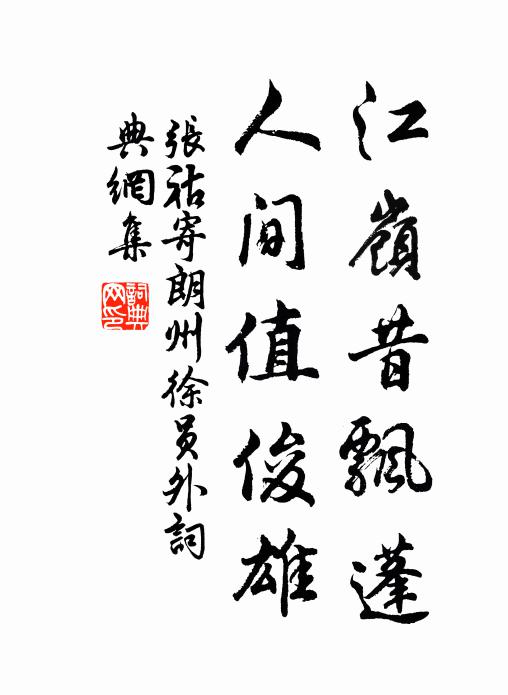 江嶺昔飄蓬
人间值俊雄
張祜寄朗州徐員外詞
典網集
詞典网印